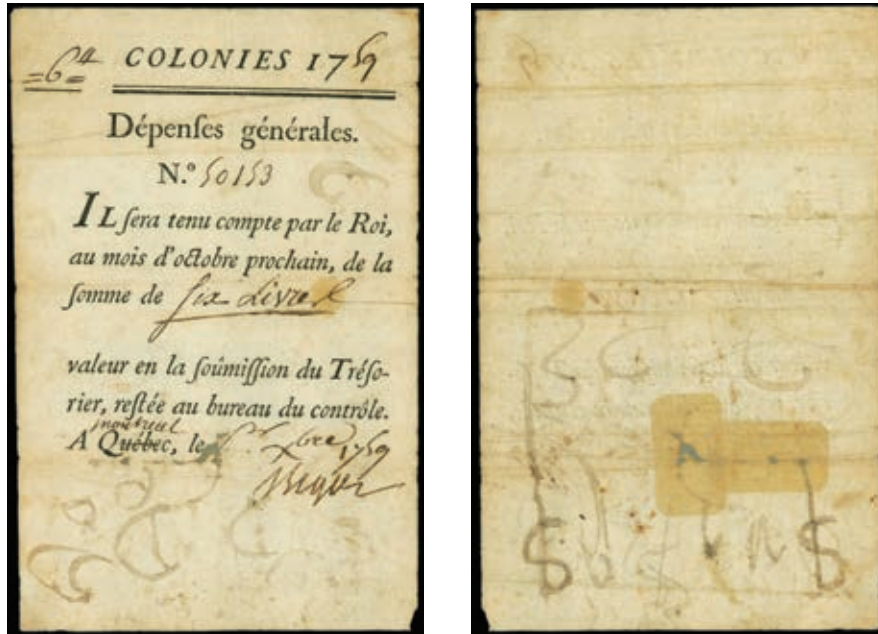 =6tt= COLONIES 1759
Dépenſes générales.
N.º 50153
IL ſera tenu compte par le Roi,
au mois d'octobre prochain, de la
ſomme de ſix Livres
valeur en la ſoûmiſſion du Tréſo-
rier, reſtée au bureau du contrôle.
montreal
A Québec, le xbre 1759
Bigot